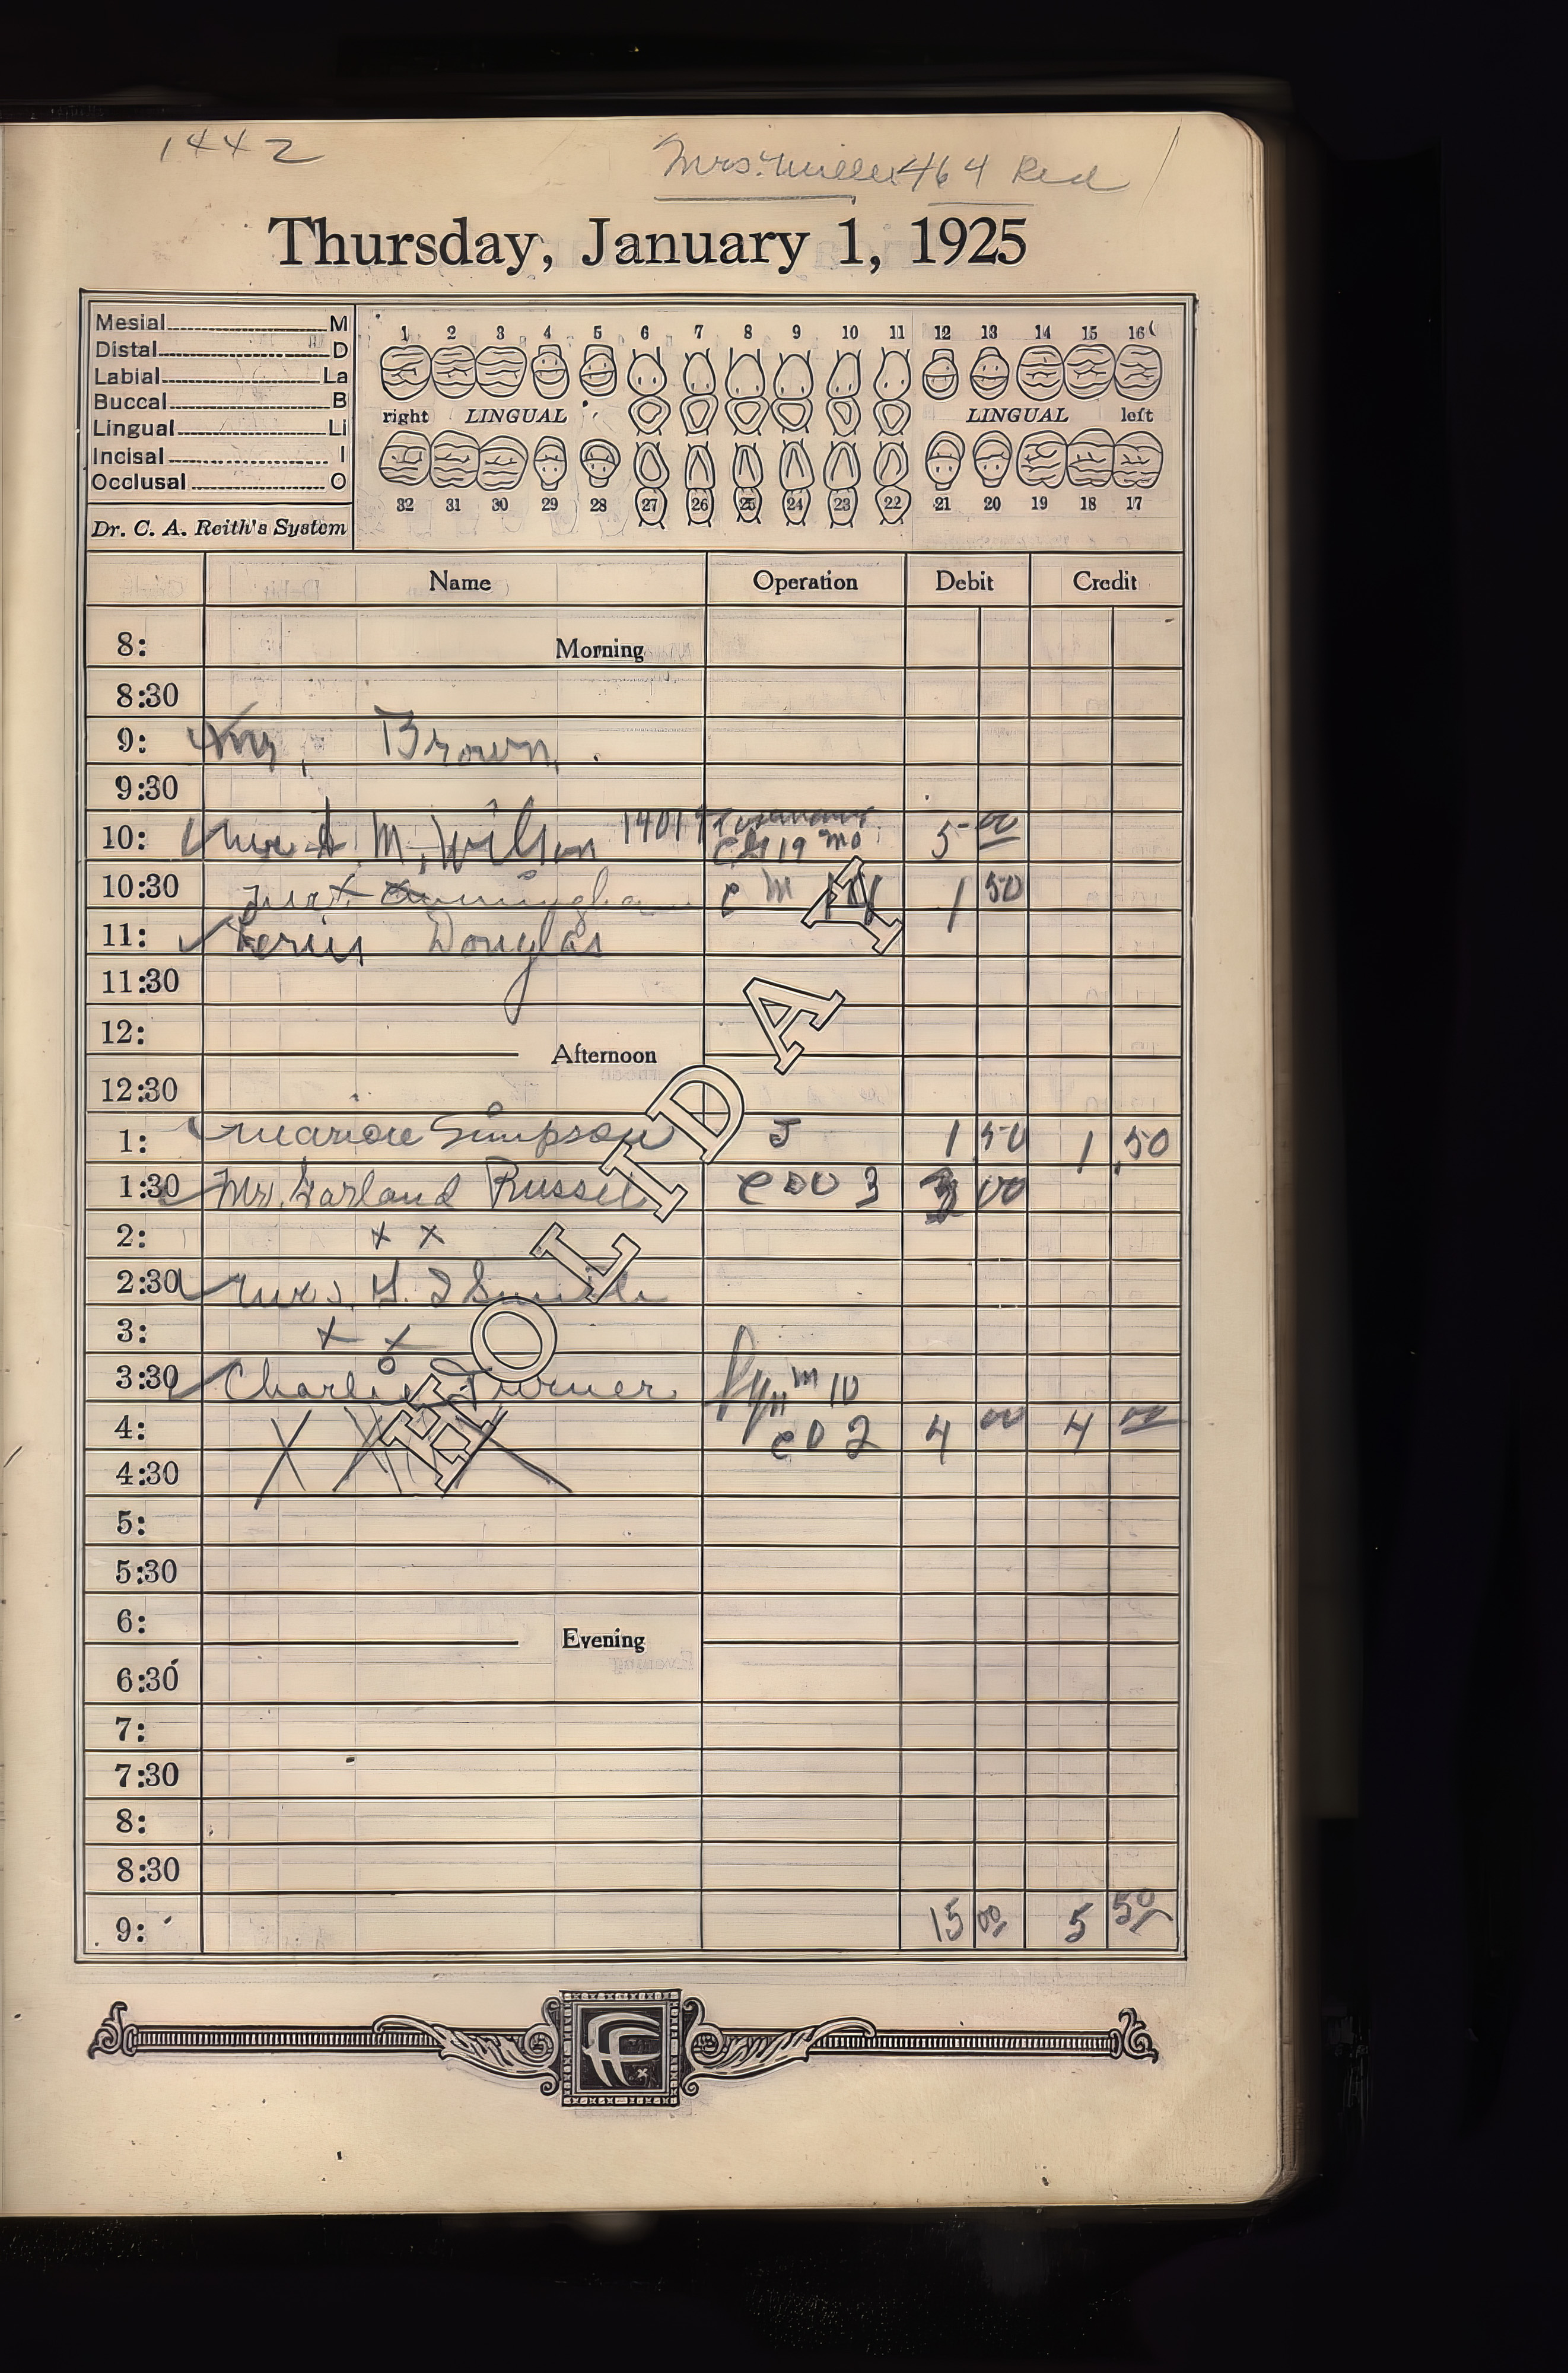 1442
Mrs. Miller 464 Red
Thursday, January 1, 1925
Mesial M
Distal D
Labial La
Buccal B
Lingual Li
Incisal I
Occlusal O
Dr. C. A. Reith's System
1 2 3 4 5 6 7 8 9 10 11 12 13 14 15 16
right LINGUAL LINGUAL left
32 31 30 29 28 27 26 25 24 23 22 21 20 19 18 17
Name Operation Debit Credit
8: Morning
8:30
9: Brown
9:30
10: M. Wilson 1401 5 00
19 mo
10:30 Cunningham C M 1 50
11: Douglas
11:30
12: Afternoon
12:30
1: Marion Simpson J 1 50 1.50
1:30 Mr. Garland Russel C DO 3 3 00
2: x x
2:30 Mrs. Smith
3: x x
3:30 Charlie Turner M 10
4: X X X X C D 2 4 00 4 00
4:30
5:
5:30
6: Evening
6:30
7:
7:30
8:
8:30
9: 15 00 5 50
HOLIDAY